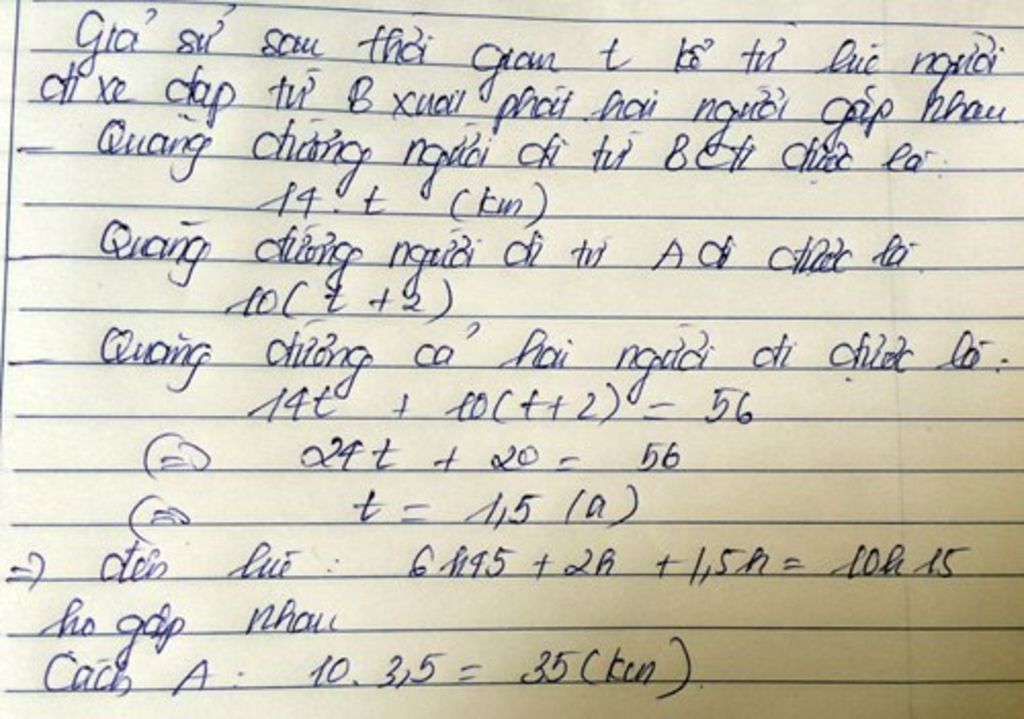 Giả sử sau thời gian t kể từ lúc người
đi xe đạp từ B xuất phát hai người gặp nhau
- Quãng đường người đi từ B đi được là:
14.t (km)
Quãng đường người đi từ A đi được là
10(t+2)
- Quãng đường cả hai người đi được là:
14t + 10(t+2) = 56
(=) 24t + 20 = 56
(=) t = 1,5 (h)
=> đến lúc: 6h45 + 2h + 1,5h = 10h15
họ gặp nhau
Cách A: 10. 3,5 = 35 (km).